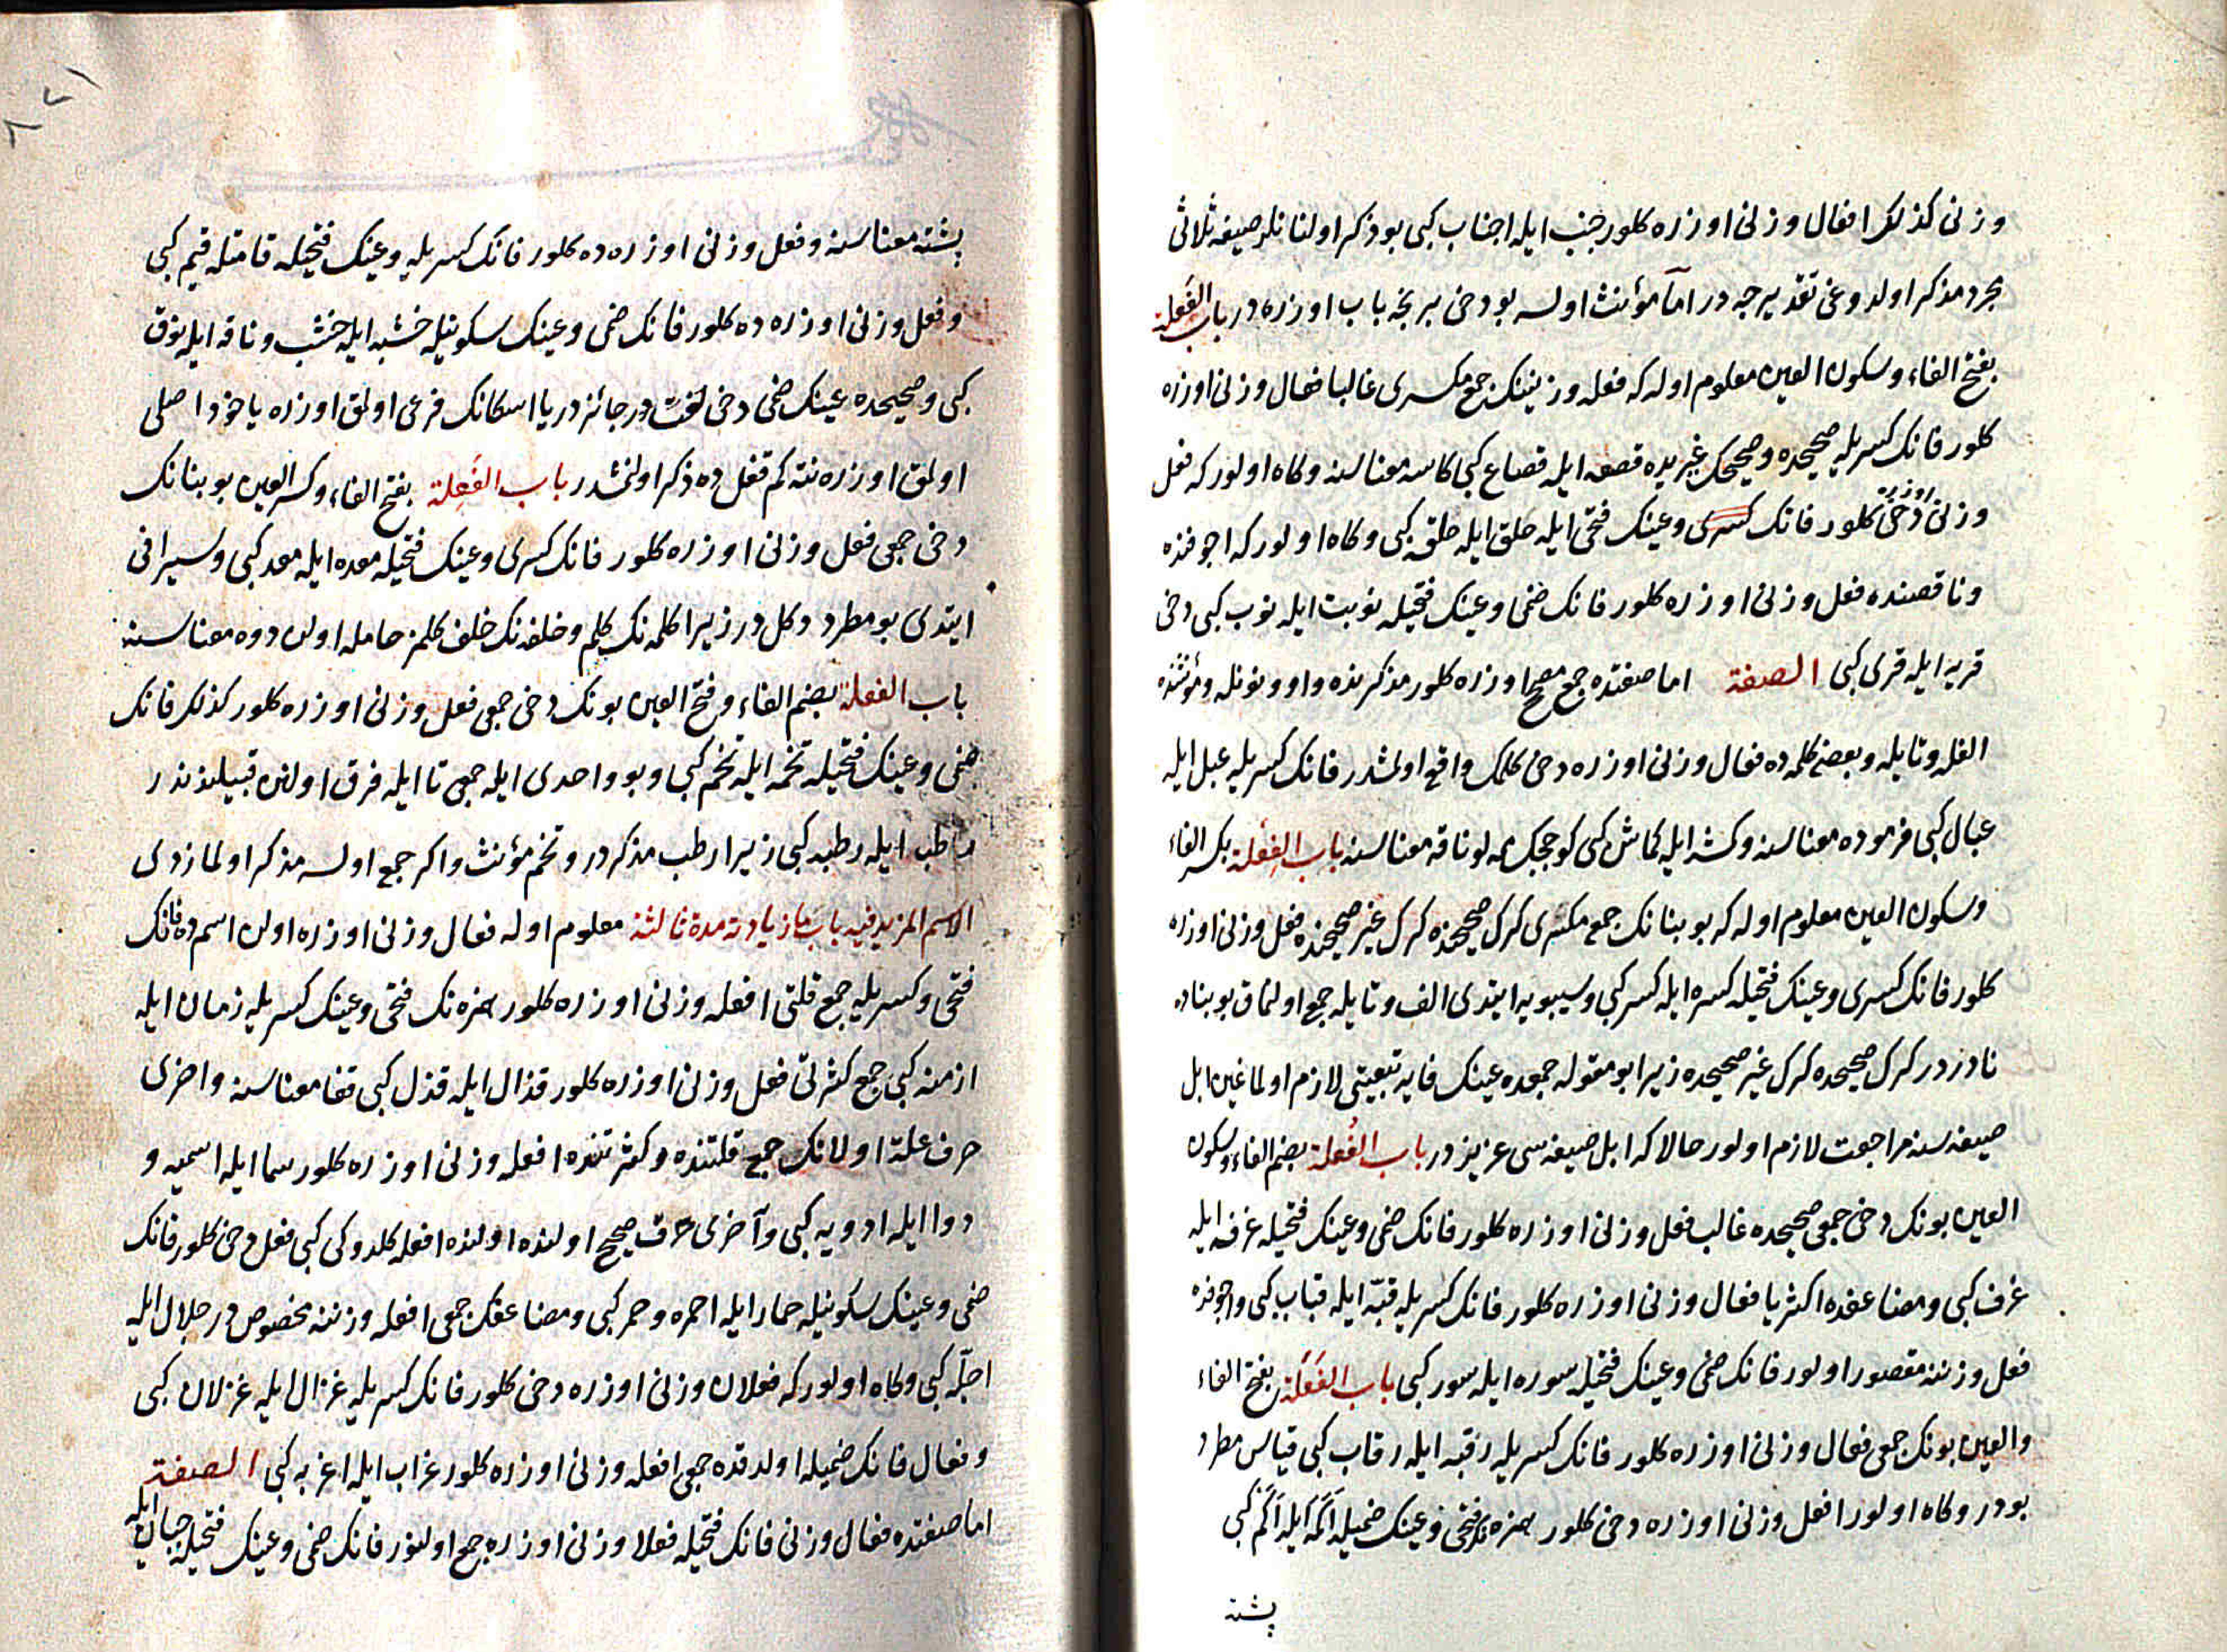 وزنى كذلك افعال وزنى اوزره كلور جنب ايله اجناب كبى بو ذكر اولنانلر صيغهٔ ثلاثى
مجرد مذكر اولدوغى تقديرجه در اما مؤنث اولسه بو دخى بر نجه باب اوزره در باب الفَعلة
بفتح الفاء وسكون العين معلوم اوله كه فعله وزنينك جمع مكسرى غالبا فعال وزنى اوزره
كلور فانك كسريله صحيحده وصحيحك غيريده قصعه ايله قصاع كبى كاسه معناسنه وكاه اولور كه فعل
وزنى اوزره دخى كلور فانك كسرى وعينك فتحى ايله حلق ايله حلقه كبى وكاه اولور كه اجوفده
وناقصنده فعل وزنى اوزره كلور فانك ضمى وعينك فتحيله نوبت ايله نوب كبى دخى
قريه ايله قرى كبى الصفة اما صفتده جمع مصحح اوزره كلور مذكرنده واو و نونله ومؤنثنده
الفله وتايله وبعض كلمه ده فعال وزنى اوزره دخى كلمك واقع اولمشدر فانك كسريله عبل ايله
عبال كبى فرموده معناسنه وكمشه ايله كماش كبى كوچجك مه لو ناقه معناسنه باب الفِعلة بكسر الفاء
وسكون العين معلوم اوله كه بو بنانك جمع مكسرى كرك صحيحنده كرك غير صحيحنده فعل وزنى اوزره
كلور فانك كسرى وعينك فتحيله كسره ايله كسر كبى وسيبويه ايتدى الف وتايله جمع اولنماق بو بناده
نادردر كرك صحيحده كرك غير صحيحده زيرا بو مقوله جمعده عينك فايه تبعيتى لازم اولماغين ابل
صيغه سنه مراجعت لازم اولور حالا كه ابل صيغه سى عزيزدر باب الفُعلة بضم الفاء وسكون
العين بونك دخى جمعى صحيحده غالب فعل وزنى اوزره كلور فانك ضمى وعينك فتحيله غرفه ايله
غرف كبى ومضاعفده اكثريا فعال وزنى اوزره كلور فانك كسريله قبّه ايله قباب كبى واجوفده
فعل وزننه مقصور اولور فانك ضمى وعينك فتحيله سوره ايله سور كبى باب الفَعَلة بفتح الفاء
والعين بونك جمعى فعال وزنى اوزره كلور فانك كسريله رقبه ايله رقاب كبى قياس مطرد
بودر وكاه اولور افعل وزنى اوزره دخى كلور همزه نك فتحى وعينك ضميله اَكَمه ايله اَكُم كبى
پشته
پشته معناسنه وفعل وزنى اوزره ده كلور فانك كسريله وعينك فتحيله قامتله قيم كبى
وفعل وزنى اوزره ده كلور فانك ضمى وعينك سكونيله خشبه ايله خشب وناقه ايله نوق
كبى وصحيحده عينك ضمى دخى لغت در جائزدر يا اسكانك فرعى اولمق اوزره ياخود اصلى
اولمق اوزره نته كم قفل ده ذكر اولنمشدر باب الفَعِلة بفتح الفاء وكسر العين بو بنانك
دخى جمعى فعل وزنى اوزره كلور فانك كسرى وعينك فتحيله معده ايله معد كبى وسيرافى
ايتدى بو مطرد دكل در زيرا كلمه نك كلم وخلفه نك خلف كلمز حامله اولان دوه معناسنه
باب الفعلة بضم الفاء وفتح العين بونك دخى جمعى فعل وزنى اوزره كلور كذلك فانك
ضمى وعينك فتحيله تخمه ايله تخم كبى وبو واحدى ايله جمعى تا ايله فرق اولنن قبيلندندر
رطب ايله رطبه كبى زيرا رطب مذكردر وتخم مؤنث واكر جمع اولسه مذكر اولمازدى
الاسم المزيد فيه باب ما زيادته مدة ثالثة معلوم اوله فعال وزنى اوزره اولن اسم ده فانك
فتحى وكسريله جمع قلتى افعله وزنى اوزره كلور همزه نك فتحى وعينك كسريله زمان ايله
ازمنه كبى جمع كثرتى فعل وزنى اوزره كلور قذال ايله قذل كبى قفا معناسنه واخرى
حرف علت اولانك جمع قلتنده وكثرتنده افعله وزنى اوزره كلور سما ايله اسميه و
دوا ايله ادويه كبى وآخرى حرف صحيح اولنده اولنده افعله كلدوكى كبى فعل دخى كلور فانك
ضمى وعينك سكونيله حمار ايله احمره وحمر كبى ومضاعفك جمعى افعله وزننه مخصوص در جلال ايله
اجلّه كبى وكاه اولور كه فعلان وزنى اوزره دخى كلور فانك كسريله غزال ايله غزلان كبى
وفعال فانك ضميله اولدقده جمعى افعله وزنى اوزره كلور غراب ايله اغربه كبى الصفة
اما صفتده فعال وزنى فانك فتحيله فعلا وزنى اوزره جمع اولنور فانك ضمى وعينك فتحيله جبان ايله